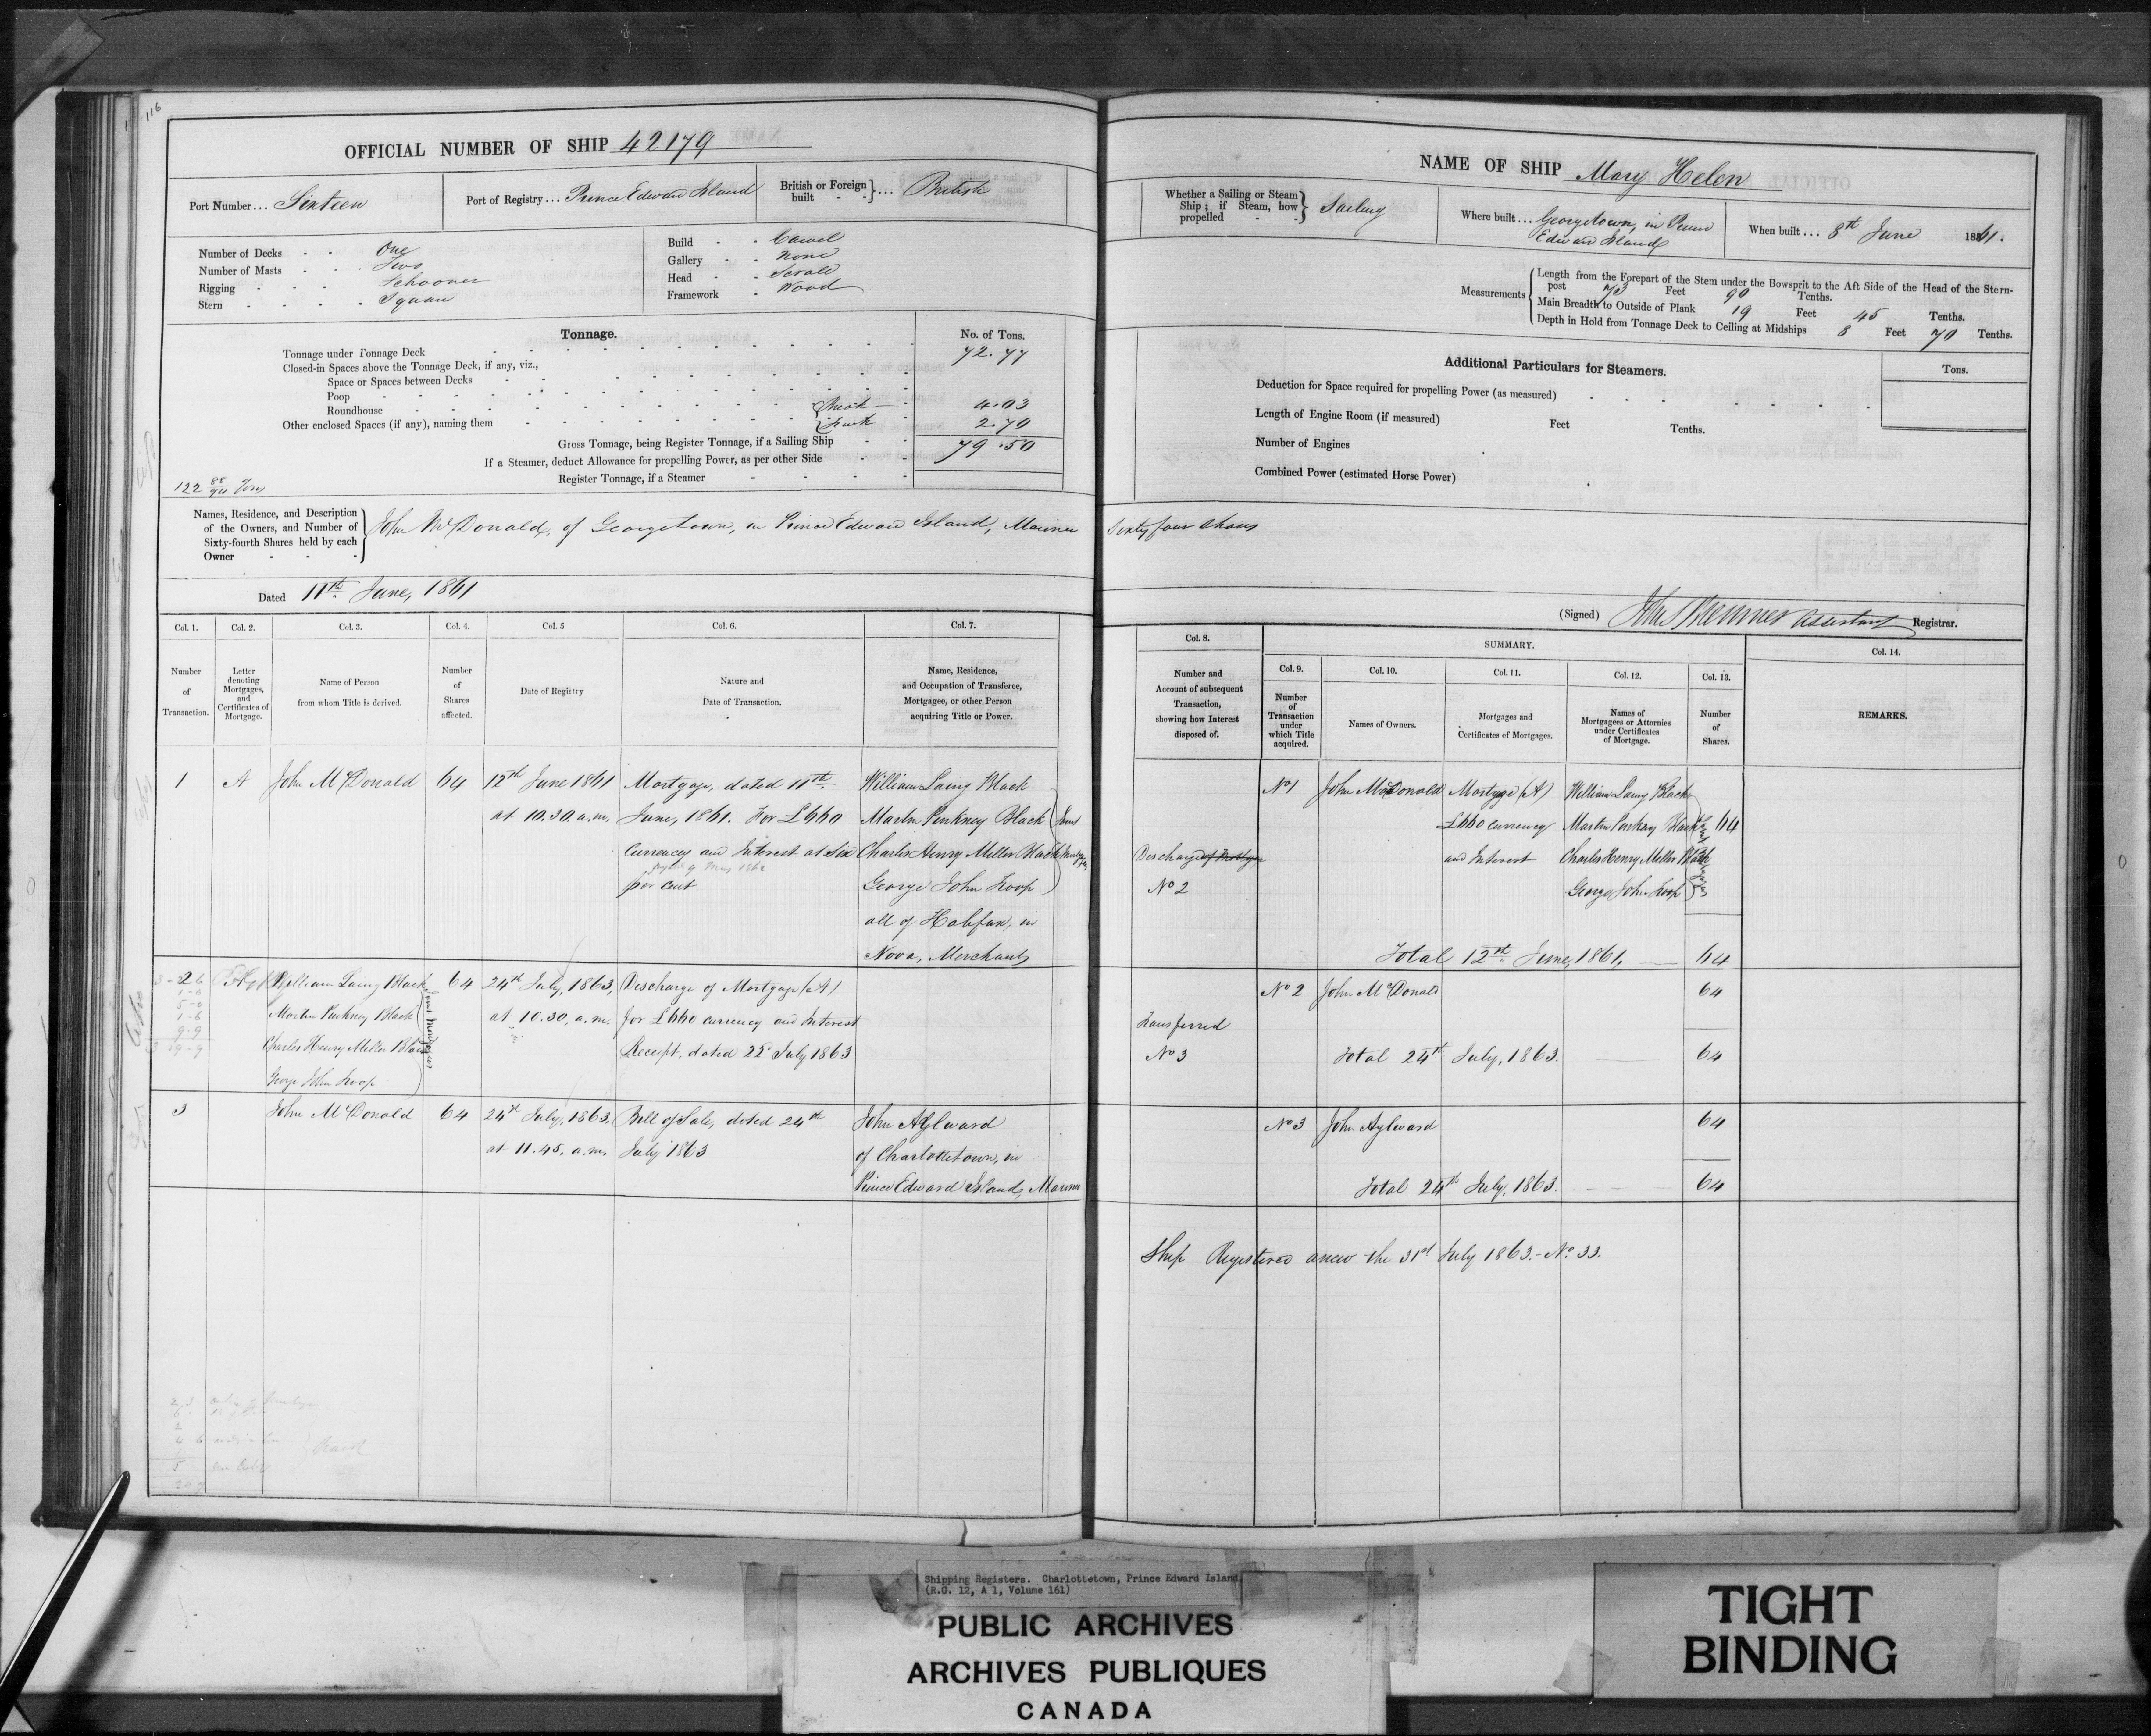 116
OFFICIAL NUMBER OF SHIP 42179
Port Number... Sixteen
Port of Registry... Prince Edward Island
British or Foreign built - - } ... British
Number of Decks - - One
Number of Masts - - Two
Rigging - - Schooner
Stern - - Square
Build - - Carvel
Gallery - - None
Head - - Scroll
Framework - Wood
Tonnage.
No. of Tons.
Tonnage under Tonnage Deck 72.77
Closed-in Spaces above the Tonnage Deck, if any, viz.,
Space or Spaces between Decks
Poop
Roundhouse
Break 4.03
Other enclosed Spaces (if any), naming them 2.70
Gross Tonnage, being Register Tonnage, if a Sailing Ship 79.50
If a Steamer, deduct Allowance for propelling Power, as per other Side
Register Tonnage, if a Steamer
122 88/94 Tons
Names, Residence, and Description
of the Owners, and Number of
Sixty-fourth Shares held by each
Owner
John McDonald, of Georgetown, in Prince Edward Island, Mariner
Dated 11th June, 1861
Col. 1. Col. 2. Col. 3. Col. 4. Col. 5 Col. 6. Col. 7.
Number of Transaction.
Letter denoting Mortgages, and Certificates of Mortgage.
Name of Person from whom Title is derived.
Number of Shares affected.
Date of Registry
Nature and Date of Transaction.
Name, Residence, and Occupation of Transferee, Mortgagee, or other Person acquiring Title or Power.
1 A John McDonald 64 12th June 1861 Mortgage, dated 11th William Laing Black
at 10.30. a.m. June, 1861. For £660 Martin Pinkney Black
Currency and Interest at Six Charles Henry Miller Black
per cent George John Troop
all of Halifax, in
Nova, Merchants
Joint Mortgagees
2 William Laing Black 64 24th July, 1863, Discharge of Mortgage (A)
Martin Pinkney Black at 10.30, a.m. for £660 currency and Interest
Charles Henry Miller Black Receipt, dated 22d July 1863
George John Troop
Joint Mortgagees
3 John McDonald 64 24th July, 1863. Bill of Sale, dated 24th John Aylward
at 11.45. a.m. July 1863 of Charlottetown, in
Prince Edward Island, Mariner
NAME OF SHIP Mary Helen
Whether a Sailing or Steam Ship; if Steam, how propelled - - } Sailing
Where built... Georgetown, in Prince
Edward Island
When built... 8th June 1861.
Measurements
Length from the Forepart of the Stem under the Bowsprit to the Aft Side of the Head of the Stern-
post 73 Feet 90 Tenths.
Main Breadth to Outside of Plank 19 Feet 45 Tenths.
Depth in Hold from Tonnage Deck to Ceiling at Midships 8 Feet 70 Tenths.
Additional Particulars for Steamers.
Tons.
Deduction for Space required for propelling Power (as measured)
Length of Engine Room (if measured) Feet Tenths.
Number of Engines
Combined Power (estimated Horse Power)
Sixty four Shares
(Signed) Assistant Registrar.
Col. 8. SUMMARY. Col. 14.
Col. 9. Col. 10. Col. 11. Col. 12. Col. 13.
Number and Account of subsequent Transaction, showing how Interest disposed of.
Number of Transaction under which Title acquired.
Names of Owners.
Mortgages and Certificates of Mortgages.
Names of Mortgagees or Attornies under Certificates of Mortgage.
Number of Shares.
REMARKS.
No 1 John McDonald Mortgage (A) William Laing Black
£660 Currency Martin Pinkney Black 64
Discharge of Mortgage and Interest Charles Henry Miller Black
No 2 George John Troop
Total 12th June, 1861, 64
No 2 John McDonald 64
Transferred
No 3 Total 24th July, 1863. 64
No 3 John Aylward 64
Total 24th July, 1863. 64
Ship Registered anew the 31st July 1863. - No. 33.
Shipping Registers. Charlottetown, Prince Edward Island,
(R.G. 12, A 1, Volume 161)
PUBLIC ARCHIVES
ARCHIVES PUBLIQUES
CANADA
TIGHT
BINDING